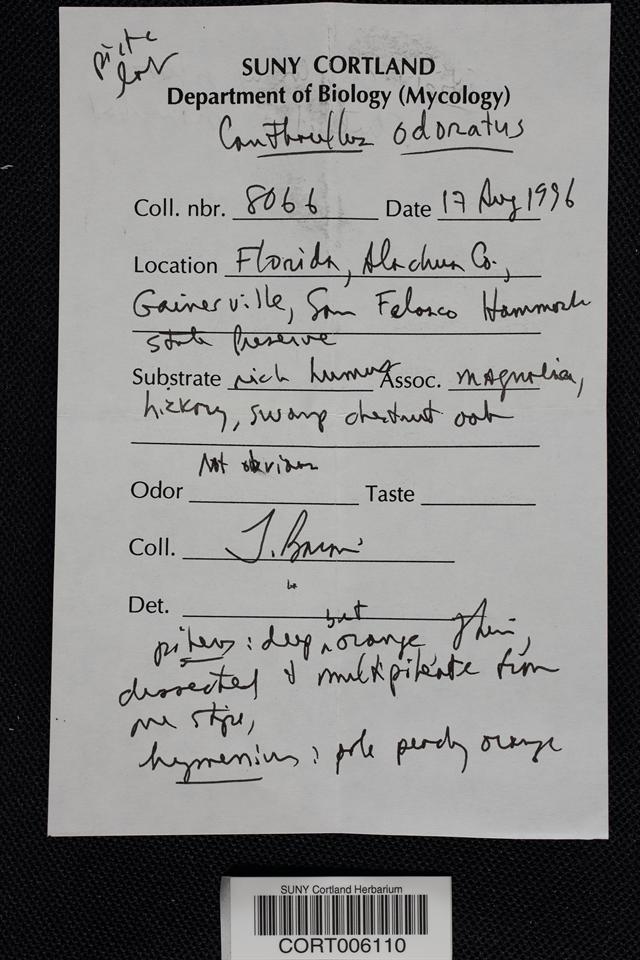 SUNY CORTLAND
Department of Biology (Mycology)
Cantharellus odoratus
Coll. nbr. 8066 Date 17 Aug 1996
Location Florida, Alachua Co.,
Gainesville, San Felasco Hammock
State Preserve
Substrate rich humus Assoc. magnolia,
hickory, swamp chestnut oak
Not obvious
Odor Taste
Coll. J. Baroni
Det.
but
pileus: deep orange thin,
dissected & multipileate from
one stipe,
hymenium: pale peachy orange
SUNY Cortland Herbarium
CORT006110